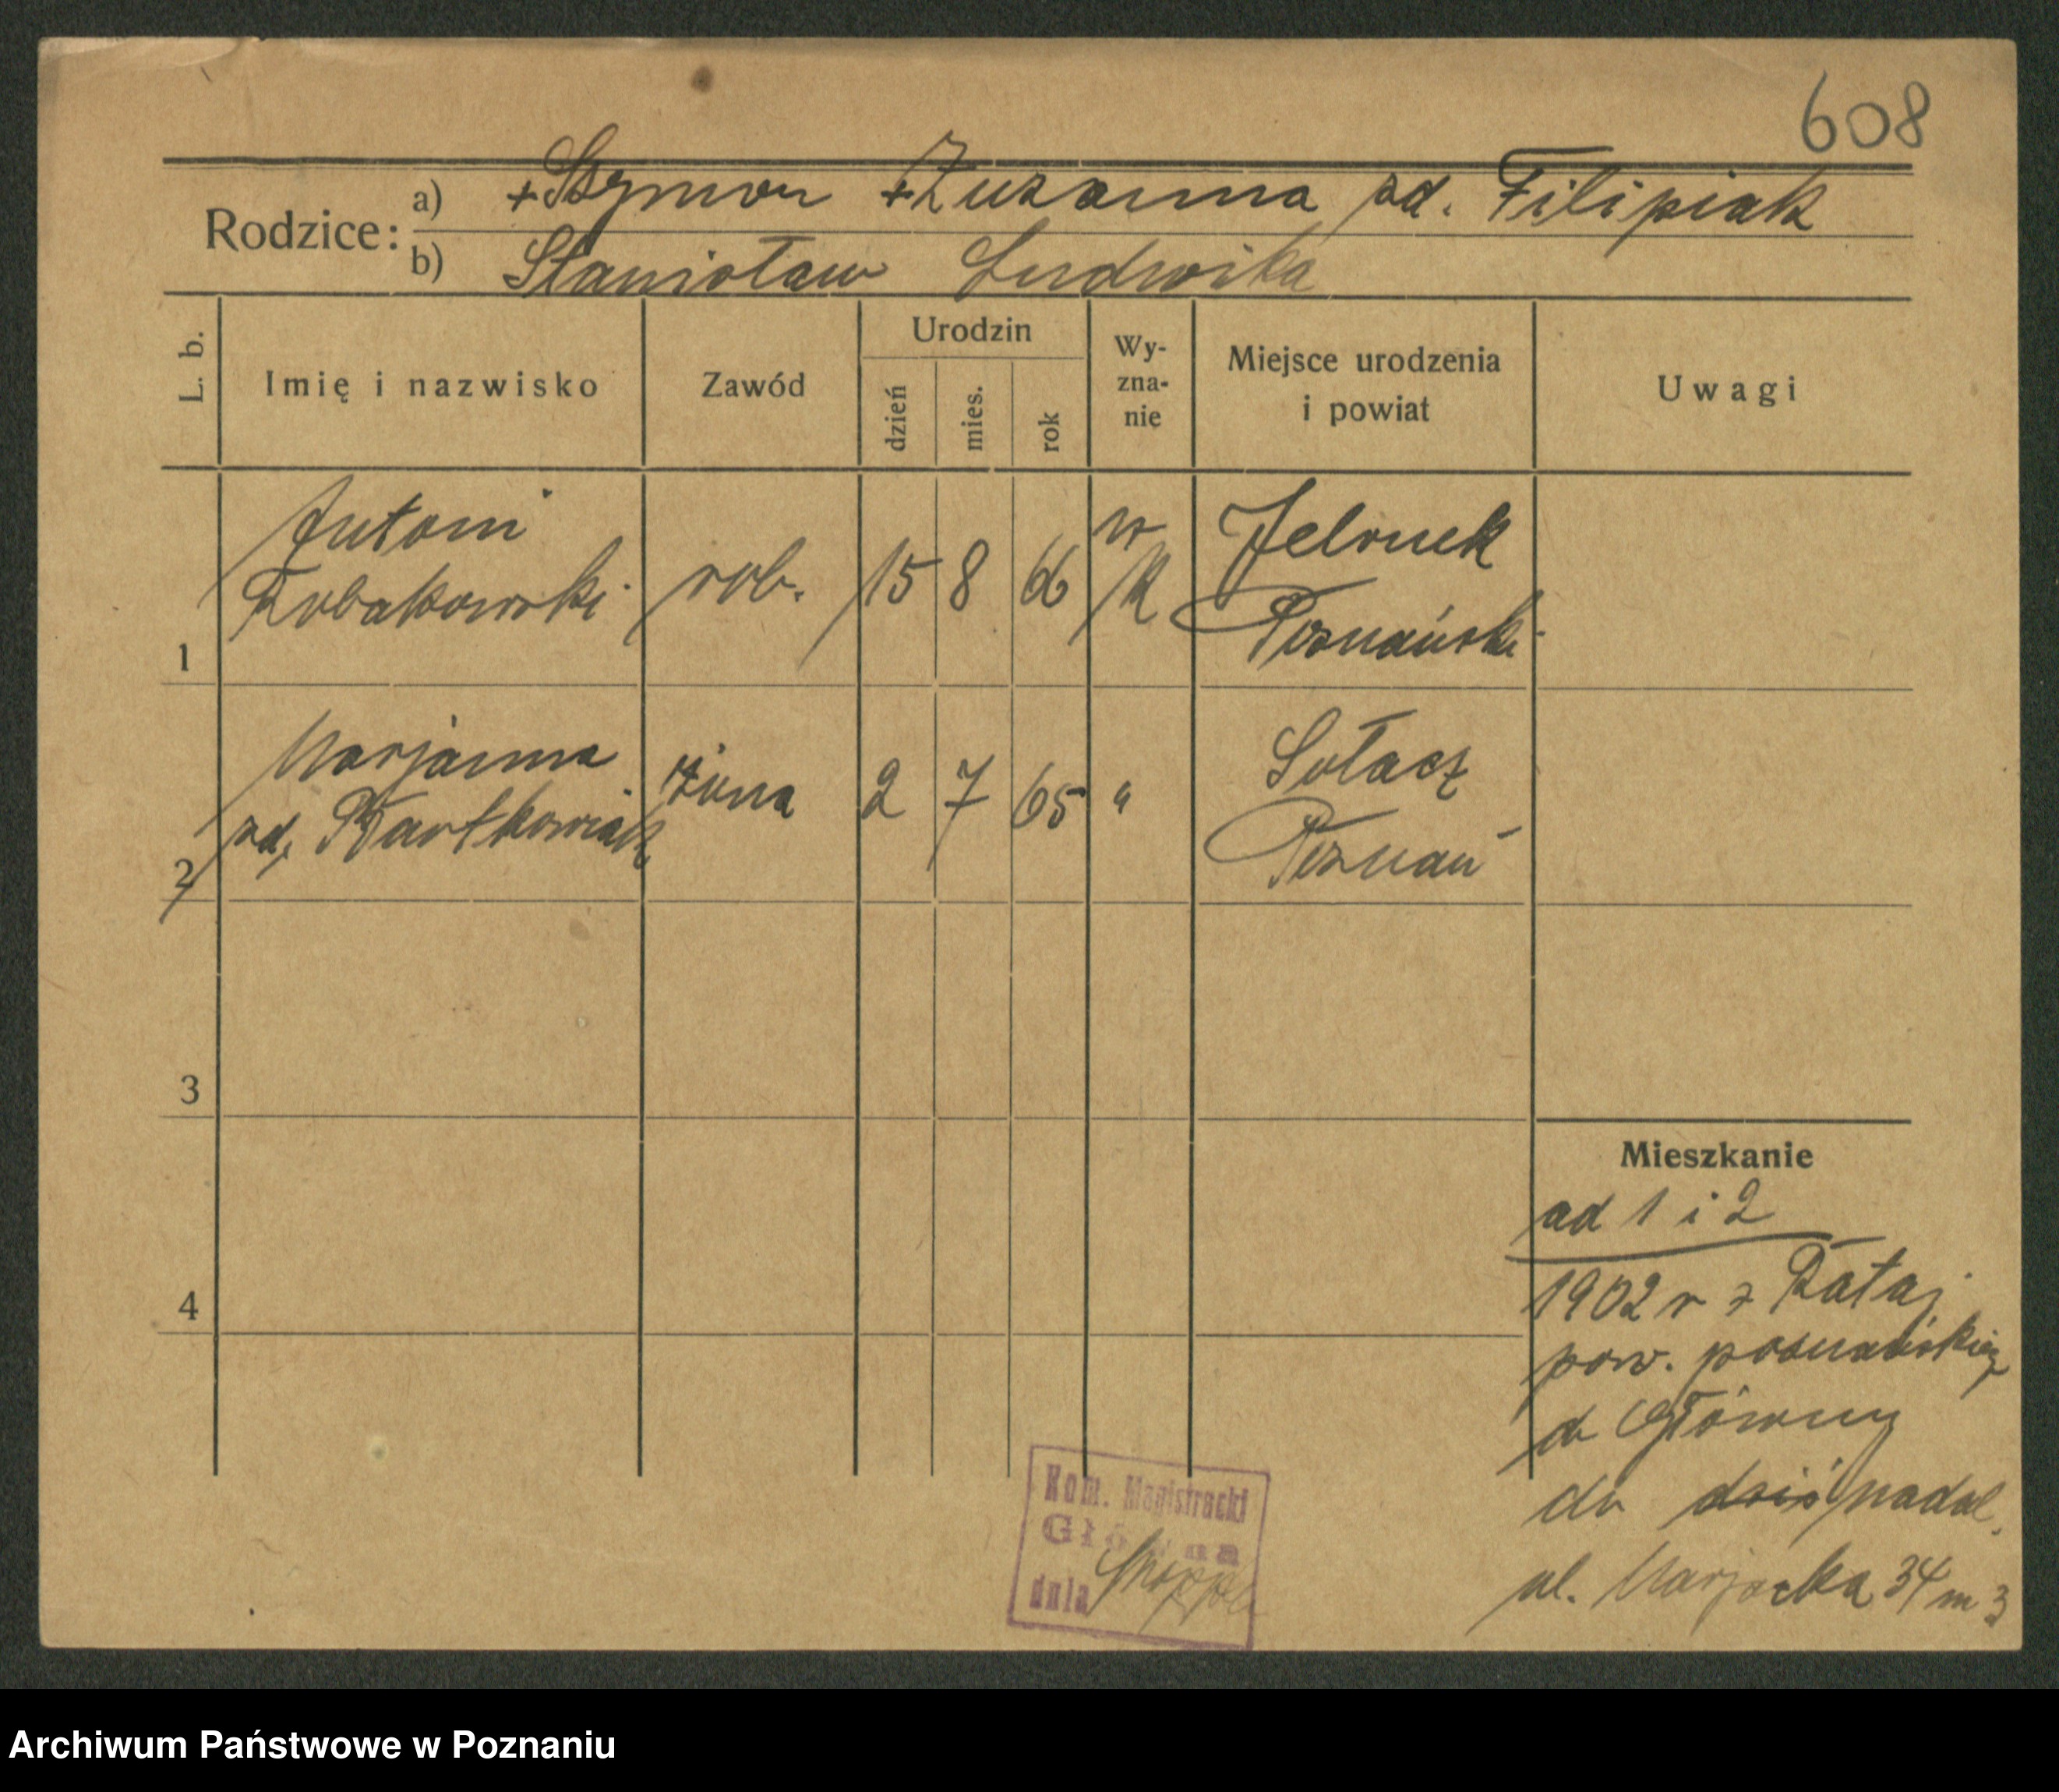 608
Rodzice: a) +Szymon +Zuzanna zd. Filipiak
b) Stanisław Ludwika
L. b.
Imię i nazwisko
Zawód
Urodzin
dzień
mies.
rok
Wy-
zna-
nie
Miejsce urodzenia
i powiat
Uwagi
Antoni
Robakowski
rob. 15 8 66
rz
k
Jelonek
Poznański
1
Marjanna
zd. Bartkowiak
żona 2 7 65 "
Sołacz
Poznań
2
3
Mieszkanie
ad 1 i 2
4
1902 r z Rataj
pow. poznańskieg
do Główny
do dziś nadal.
ul. Marjacka 34 m 3
Kom. Magistracki
Główna
dnia
Archiwum Państwowe w Poznaniu